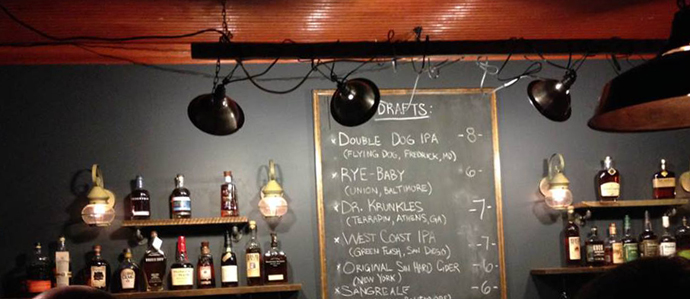 DRAFTS:
* DOUBLE DOG IPA -8-
(FLYING DOG, FREDRICK, MD)
* RYE-BABY 6-
(UNION, BALTIMORE)
* DR. KRUNKLES -7-
(TERRAPIN, ATHENS, GA)
* WEST COAST IPA -7-
(GREEN FLASH, SAN DIEGO)
* ORIGINAL SIN HARD CIDER -6-
(NEW YORK)
* SANGREALE -6